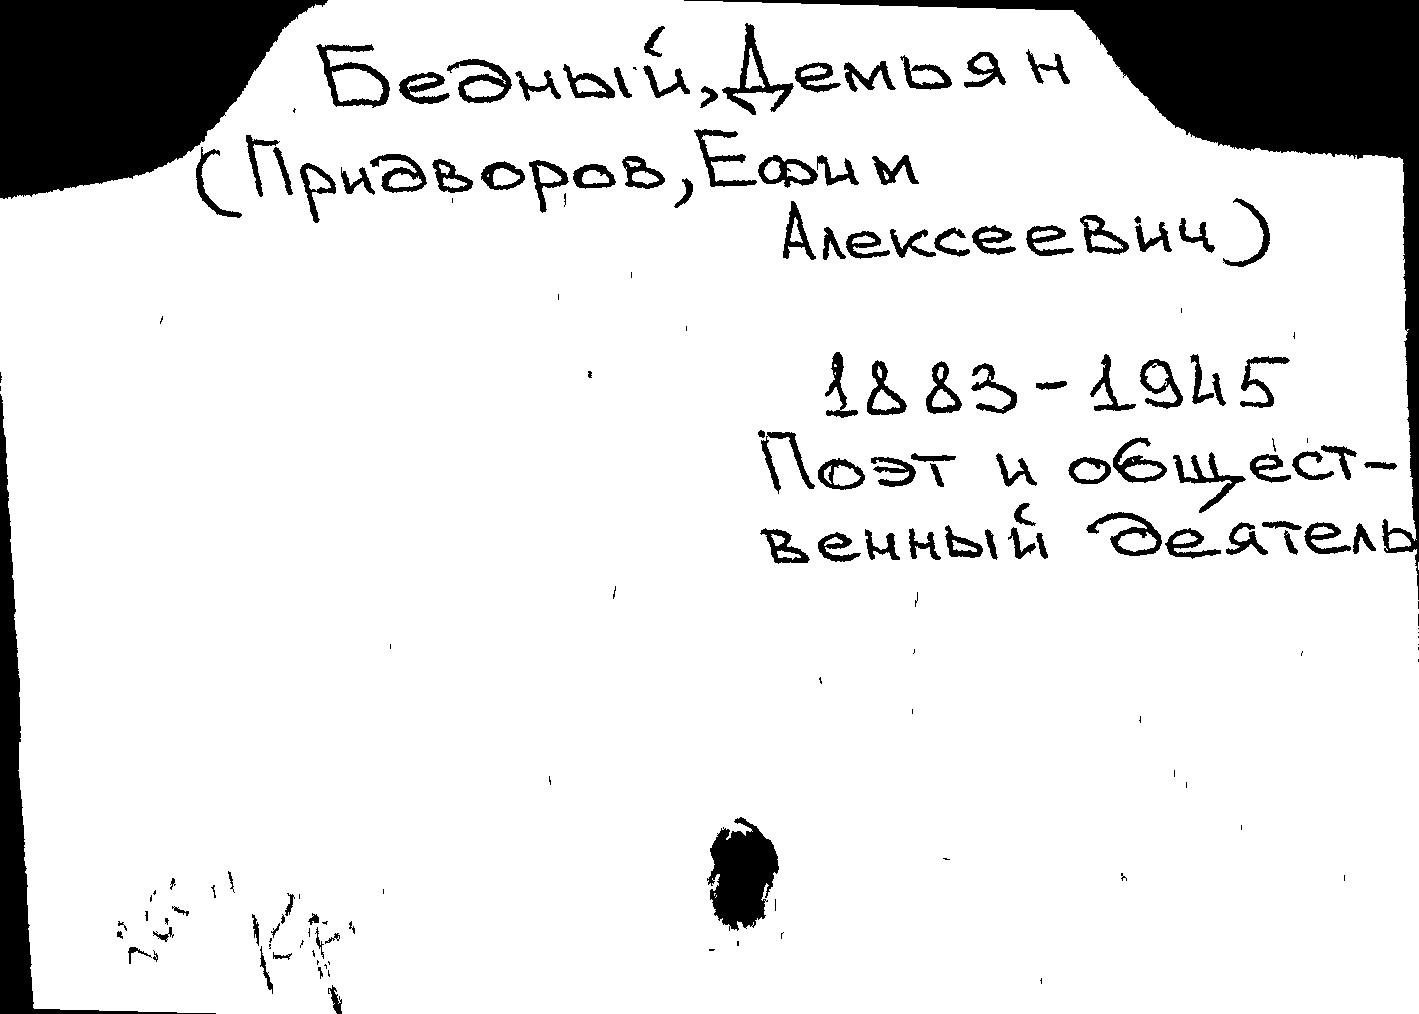 Бедный, Демьян
(Придворов, Ефим
Алексеевич)
1883-1945
Поэт и общест-
венный деятель